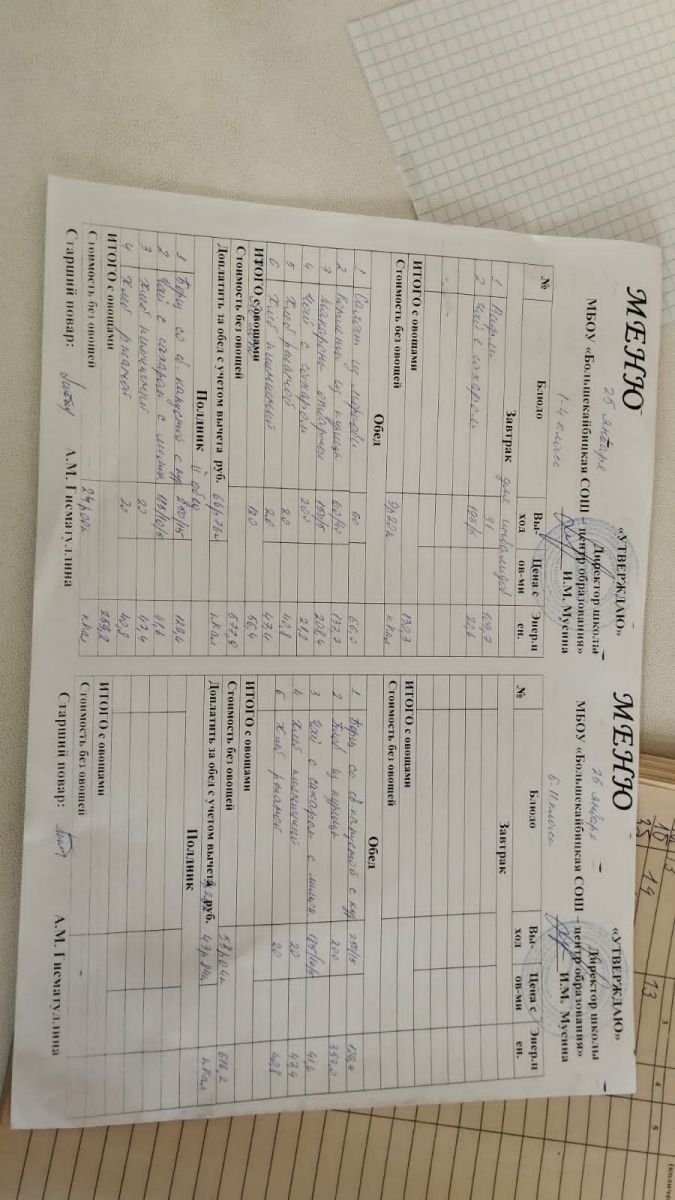 МЕНЮ
«УТВЕРЖДАЮ»
Директор школы
25 января
МБОУ «Большекайбицкая СОШ – центр образования»
И.М. Мусина
1-4 класс
№ Блюдо Вы-ход Цена с ов-ми Энер.ц ен.
Завтрак для инвалидов
1 Вафли 31 109,7
2 Чай с сахаром 195/5 22,6
ИТОГО с овощами 132,3
Стоимость без овощей 9р20к ккал
Обед
1 Салат из моркови 60
2 из курицы 137,7
3 Макароны отварные 150/5 208,4
4 Чай с сахаром 200 21,2
5 Хлеб ржаной 20 40,8
6 Хлеб пшеничный 20 47,4
ИТОГО с овощами 120 56,4
Стоимость без овощей 577,9
Доплатить за обед с учетом вычета руб. 66р76к ккал
Полдник II обед
1 Борщ со св. капустой с кур 250/15 129,4
2 Чай с сахаром с лимон 195/10/5 41,6
3 Хлеб пшеничный 20 47,4
4 Хлеб ржаной 20 40,8
ИТОГО с овощами 259,2
Стоимость без овощей 24р00к ккал
Старший повар: А.М. Гисматуллина
МЕНЮ
«УТВЕРЖДАЮ»
Директор школы
25 января
МБОУ «Большекайбицкая СОШ – центр образования»
И.М. Мусина
5-11 класс
№ Блюдо Вы-ход Цена с ов-ми Энер.ц ен.
Завтрак
ИТОГО с овощами
Стоимость без овощей
Обед
1 Борщ со св капустой с кур 250/15 129,4
2 из курицы 200 357,0
3 Чай с сахаром с лимон 195/10/5 41,6
4 Хлеб пшеничный 20 47,4
5 Хлеб ржаной 20 40,8
ИТОГО с овощами
Стоимость без овощей 58р04к 616,2
Доплатить за обед с учетом вычета руб. 43р84к ккал
Полдник
ИТОГО с овощами
Стоимость без овощей
Старший повар: А.М. Гисматуллина
14
13
3
4
5